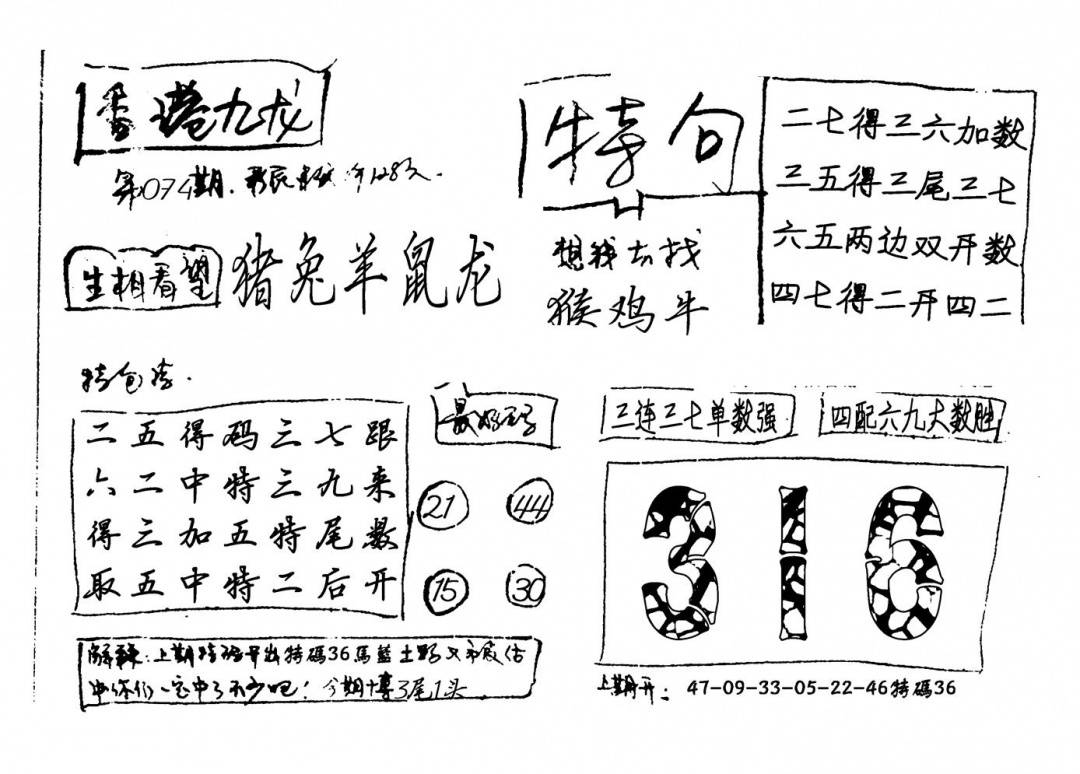 香港九龙
第074期.
生相看望
猪兔羊鼠龙
特句
想我去找
猴鸡牛
二七得三六加数
三五得三尾三七
六五两边双开数
四七得二开四二
特包
二五得码三七跟
六二中特三九来
得三加五特尾数
取五中特二后开
最好
21
44
15
30
三连三七单数强
四配六九大数胜
316
上期特码开出特碼36馬藍土野又
中你们一定中了不少吧！今期博3尾1头
上期开：47-09-33-05-22-46特碼36